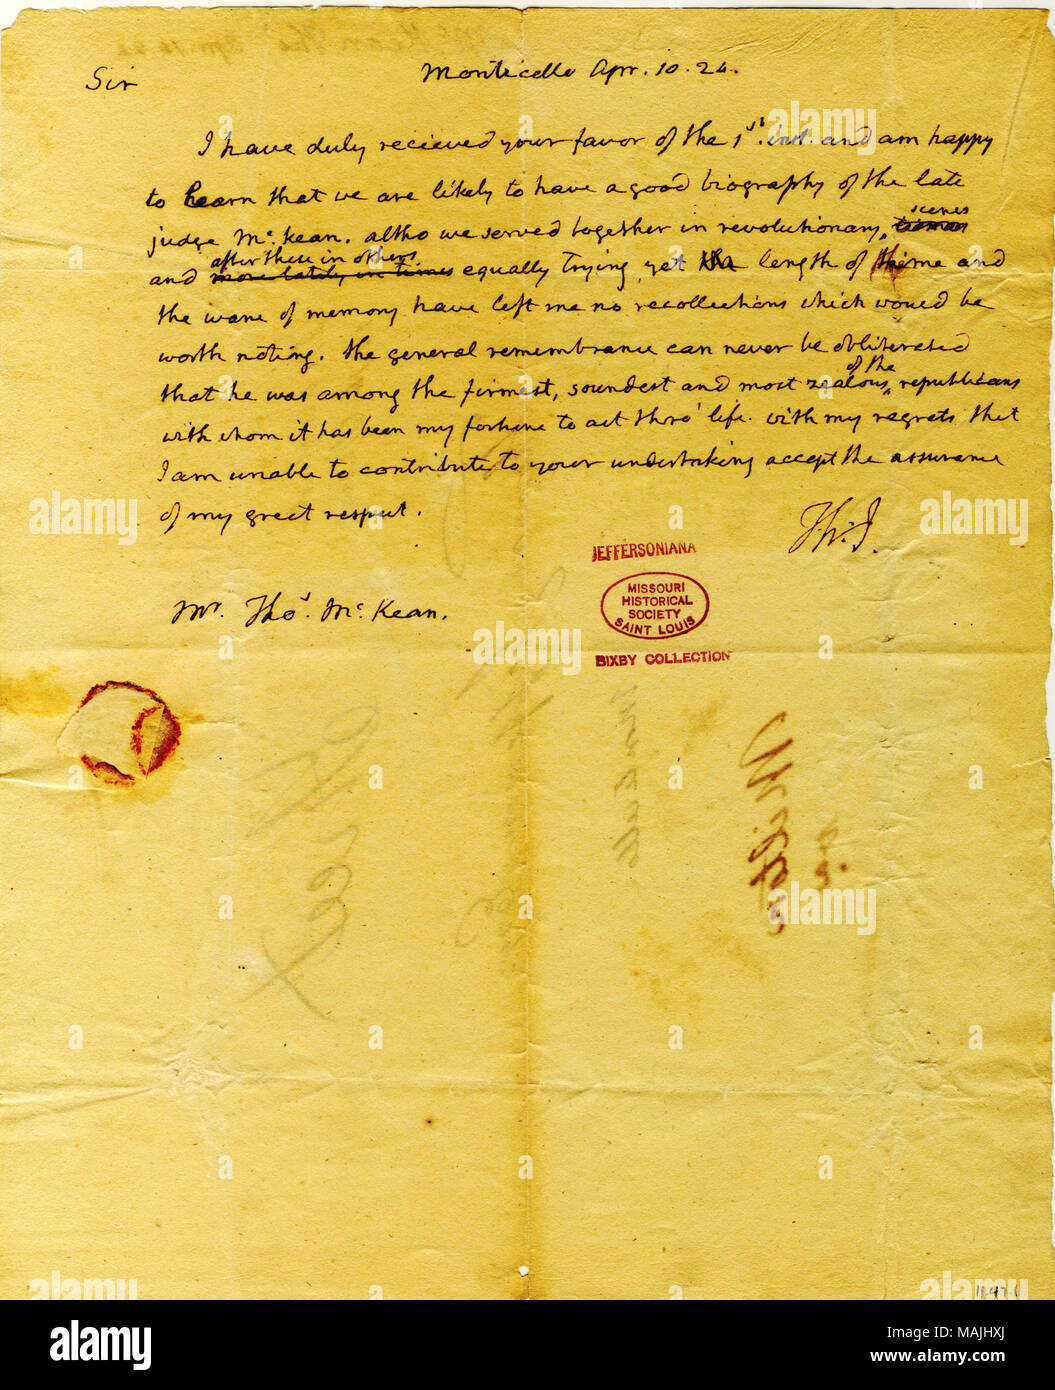 Monticello Apr. 10. 24.
Sir
I have duly recieved your favor of the 1st. inst. and am happy
to learn that we are likely to have a good biography of the late
scenes
judge Mc.Kean. altho we served together in revolutionary
after these in others
and more lately in times equally trying, yet the length of time and
the wane of memory have left me no recollections which would be
worth noting. the general remembrance can never be obliterated
of the
that he was among the firmest, soundest and most zealous republicans
with whom it has been my fortune to act thro' life. with my regrets that
I am unable to contribute to your undertaking accept the assurance
of my great respect.
Th:J.
JEFFERSONIANA
MISSOURI
HISTORICAL
SOCIETY
SAINT LOUIS
BIXBY COLLECTION
Mr. Thos. Mc.Kean.
alamy
Image ID: MAJHXJ
www.alamy.com